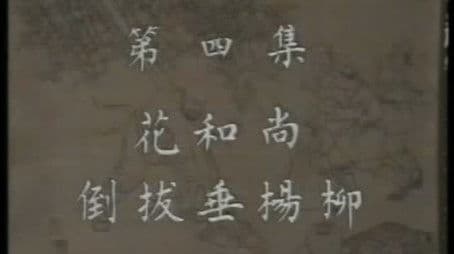 第四集
花和尚
倒拔垂楊柳